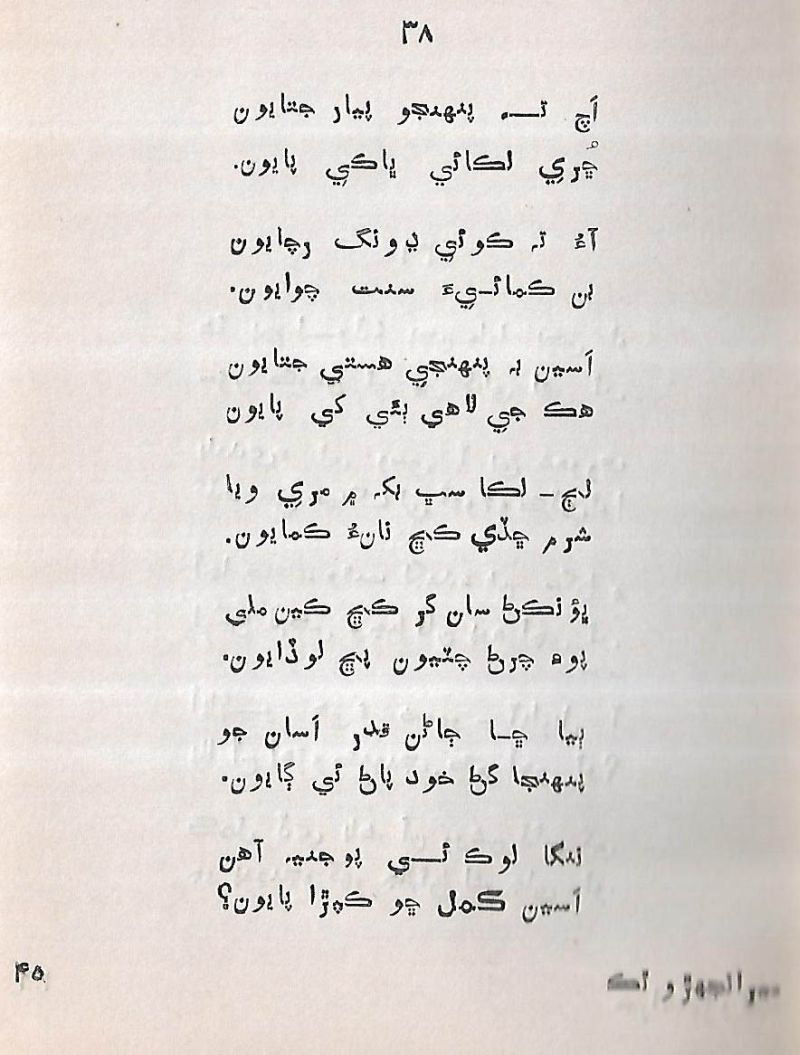 ٣٨
اَچ تـــہ پنهنجو پيار جتايون
ڇُري لڪائي ڀاڪي پايون.
آءُ تہ ڪوئي ڍونگ رچايون
بن ڪمائيءَ سنت چوايون.
اَسين بہ پنهنجي هستي جتايون
هڪ جي لاهي ٻئي کي پايون
لڄ - لڪا سڀ بکہ ۾ مري ويا
شرم ڇڏي ڪڇ نانءُ ڪمايون.
ڀؤنڪڻ سان گر ڪڇ ڪين ملي
پوہ چرڻ چٽيون پڇ لوڏايون.
ٻيا ڇا ڄاڻن قدر اَسان جو
پنهنجا گڻ خود پاڻ ئي ڳايون.
ننگا لوڪ ئي پوجنيہ آهن
اَسين ڪمل ڇو ڪپڙا پايون؟
۴۵